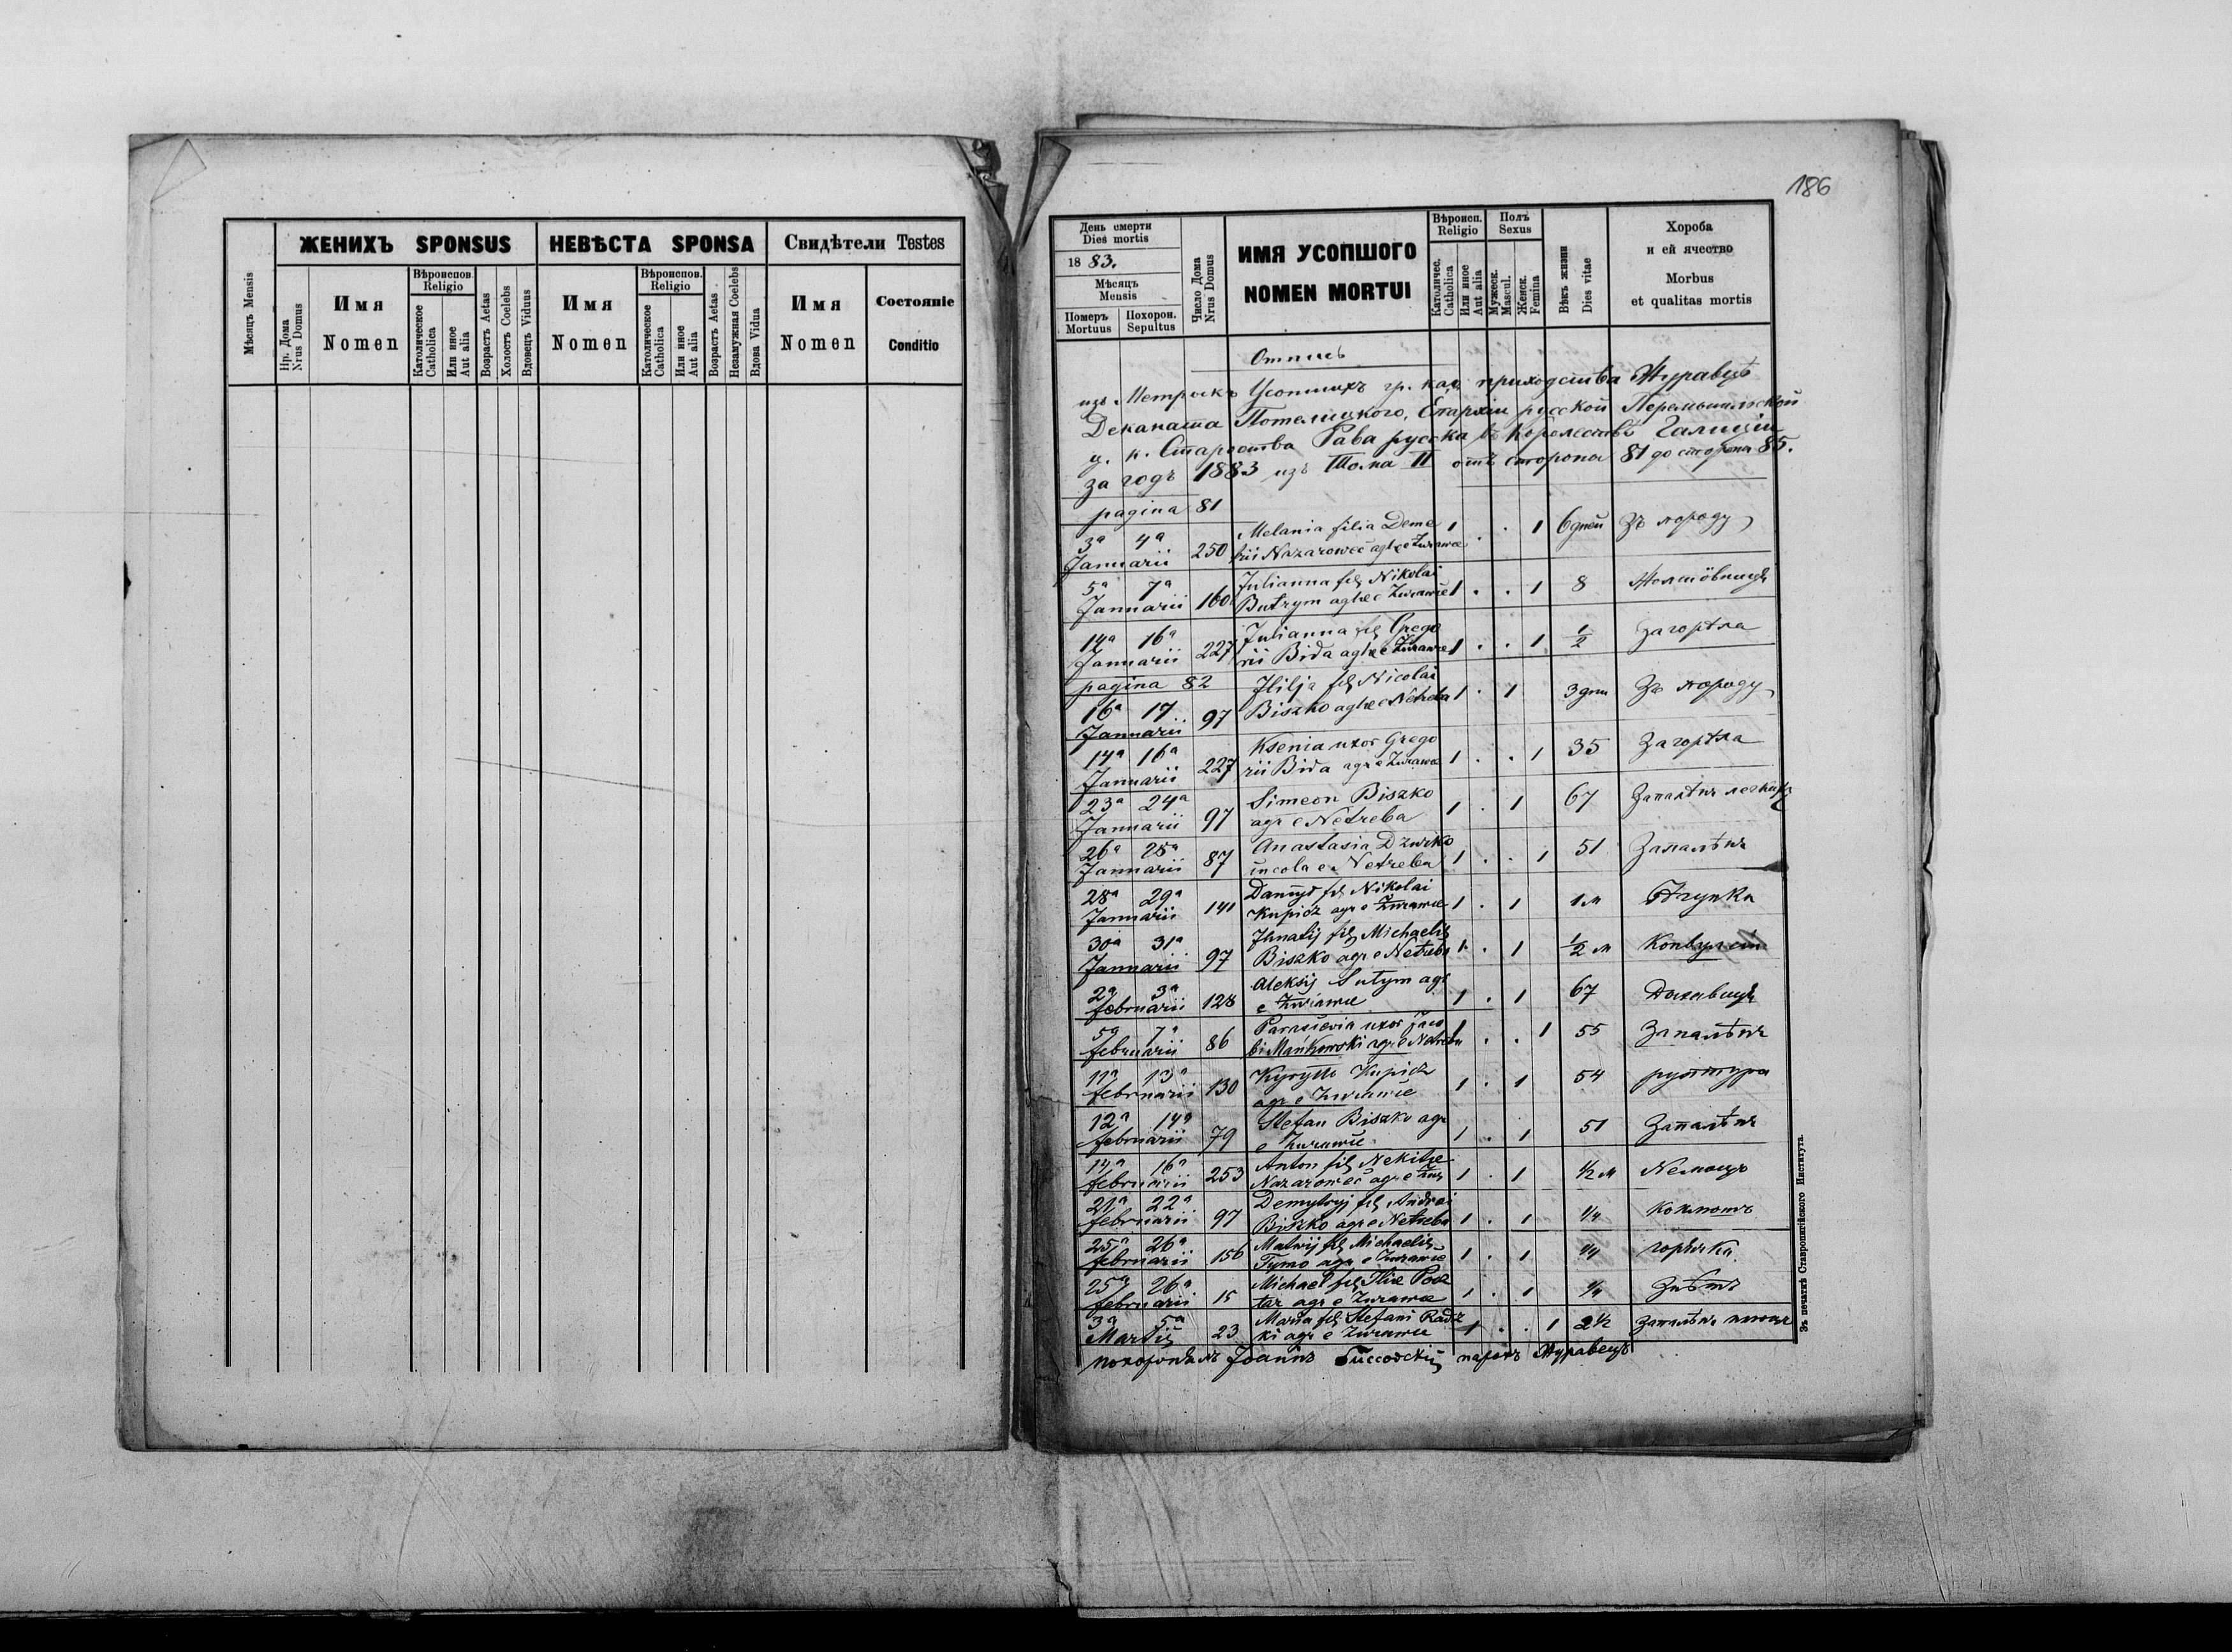 186
Мѣсяцъ Mensis
ЖЕНИХЪ SPONSUS
НЕВѢСТА SPONSA
Свидѣтели Testes
Нр. Дома
Nrus Domus
Имя
Nomen
Вѣроиспов.
Religio
Католическое
Catholica
Или иное
Aut alia
Возрастъ Aetas
Холостъ Coelebs
Вдовецъ Viduus
Имя
Nomen
Вѣроиспов.
Religio
Католическое
Catholica
Или иное
Aut alia
Возрастъ Aetas
Незамужная Coelebs
Вдова Vidua
Имя
Nomen
Состоянiе
Conditio
День смерти
Dies mortis
1883.
Мѣсяцъ
Mensis
Померъ
Mortuus
Похорон.
Sepultus
Число Дома
Nrus Domus
ИМЯ УСОПШОГО
NOMEN MORTUI
Вѣроисп.
Religio
Католичес.
Catholica
Или иное
Aut alia
Полъ
Sexus
Мужеск.
Mascul.
Женск.
Femina
Вѣкъ жизни
Dies vitae
Хороба
и ей ячество
Morbus
et qualitas mortis
Отпись
изъ Метрыкъ Усопшихъ гр. кат. приходства Журавцѣ
Деканата Потелицкого, Епархiи русской Перемышльской
ц. к. Староства Рава русска въ Королествѣ Галицiи
за годъ 1883 изъ Тома II отъ стороны 81 до стороны 85.
pagina 81
3ª 4ª Januarii 250 Melania filia Deme
trii Nazarowec agr e Żurawce 1 . . 1 6 дней Зъ породу
5ª 7ª Januarii 160 Julianna fil Nikolai
Butrym agr e Żurawce 1 . . 1 8
14ª 16ª Januarii 227 Julianna fil Grego
rii Bida agr e Żurawce 1 . . 1 1/2 Загорѣла
pagina 82
16ª 17 Januarii 97 Jlilja fil Nicolai
Biszko agr e Netreba 1 . 1 3 дни Зъ породу
14ª 16ª Januarii 227 Ksenia uxor Grego
rii Bida agr e Żurawce 1 . . 1 35 Загорѣла
23ª 24ª Januarii 97 Simeon Biszko
agr e Netreba 1 . 1 67 Запалѣнє легкихъ
26ª 28ª Januarii 87 Anastasia Dziwko
incola e Netreba 1 . . 1 51 Запалѣнє
28ª 29ª Januarii 141 Danyd fil Nikolai
Kupicz agr e Żurawce 1 . 1 1 м
30ª 31ª Januarii 97 Jhnatij fil Michaelis
Biszko agr e Netreba 1 . 1 1/2 м Конвульсiи
2ª 3ª februarii 128 Aleksij Sutym agr
e Żurawce 1 . 1 67
5ª 7ª februarii 86 Parascevia uxor Jaco
bi Mańkowski agr e Netreba 1 . . 1 55 Запалѣнє
11ª 13ª februarii 130 Kyryłło Kupicz
agr e Żurawce 1 . 1 54 руптура
12ª 14ª februarii 79 Stefan Biszko agr
e Żurawce 1 . 1 51 Запалѣнє
14ª 16ª februarii 253 Anton fil Nekitae
Nazarowec agr e Żur 1 . 1 1/2 м Немощь
21ª 22ª februarii 97 Demytryj fil Andrei
Biszko agr e Netreba 1 . 1 1/4 Коклюшъ
25ª 26ª februarii 156 Matwij fil Michaelis
Tymo agr e Żurawce 1 . 1 1/4 горячка
25ª 26ª februarii 15 Michael fil Iliae Pocz
tar agr e Żurawce 1 . 1 1/4
3ª 5ª Martii 23 Maria fil Stefani Radz
ki agr e Żurawce 1 . . 1 2 1/2 Запалѣнє
похоронялъ Joаннъ парохъ Журавецъ
Зъ печатнѣ Ставропигiйского Института.